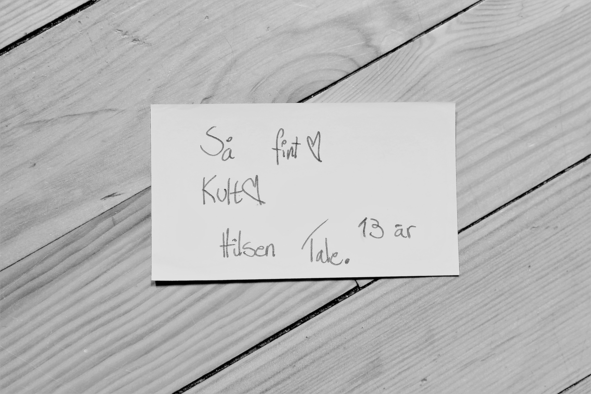 Så fint♡
Kult♡
Hilsen Tale. 13 år